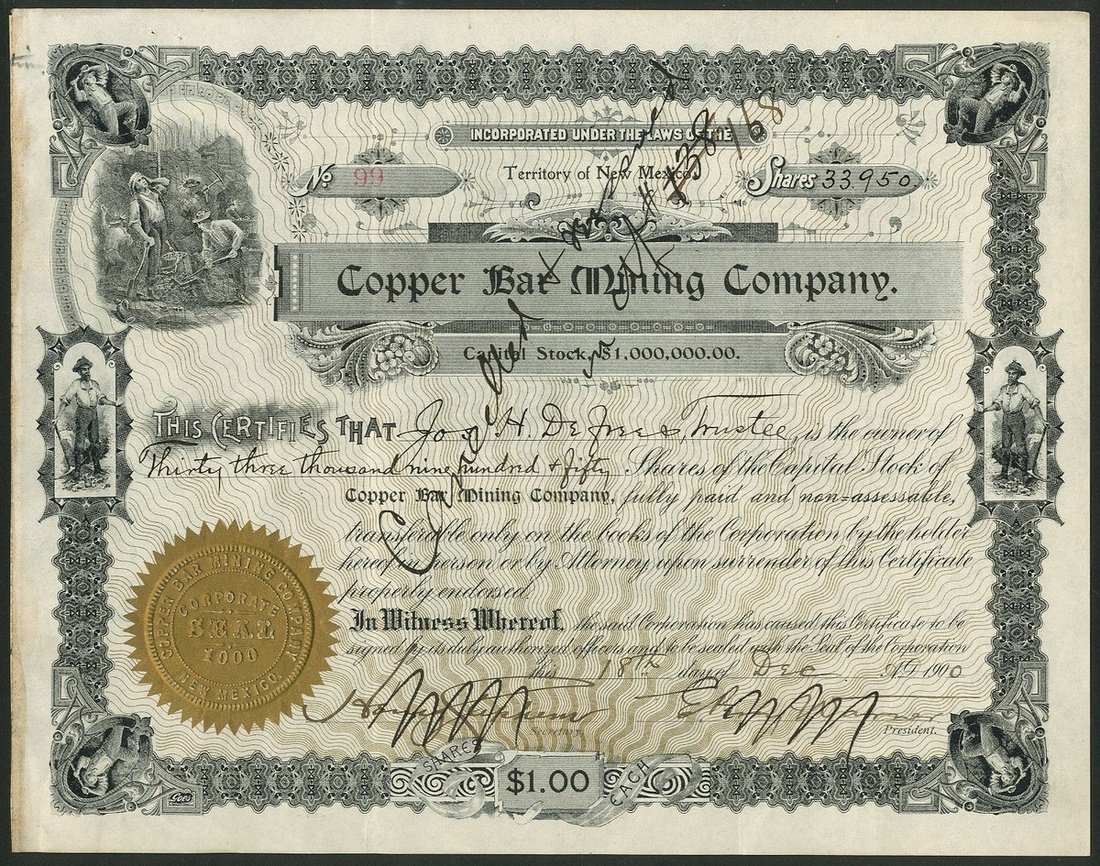 INCORPORATED UNDER THE LAWS OF THE
No 99
Territory of New Mexico.
Shares 33.950.
Copper Bar Mining Company.
Capital Stock, $1,000,000.00.
THIS CERTIFIES THAT Jos. H. DeFrees, Trustee, is the owner of
Thirty three thousand nine hundred & fifty Shares of the Capital Stock of
Copper Bar Mining Company, fully paid and non=assessable,
transferable only on the books of the Corporation by the holder
hereof in person or by Attorney upon surrender of this Certificate
properly endorsed.
In Witness Whereof, the said Corporation has caused this Certificate to be
signed by its duly authorized officers and to be sealed with the Seal of the Corporation
this 18th day of Dec A.D. 1900
Secretary.
President.
COPPER BAR MINING COMPANY
CORPORATE
SEAL
1900
NEW MEXICO.
SHARES
$1.00
EACH
Goes
Cancelled